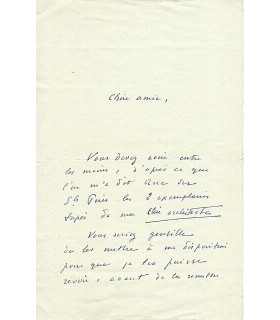 Chère amie,
Vous devez avoir entre
les mains, d'après ce que
l'on m'a dit Rue des
Sts Pères les 2 exemplaires
tapés de mon
architecte
Vous seriez gentille
de les mettre à ma disposition
pour que je les puisse
revoir, avant de les remettre